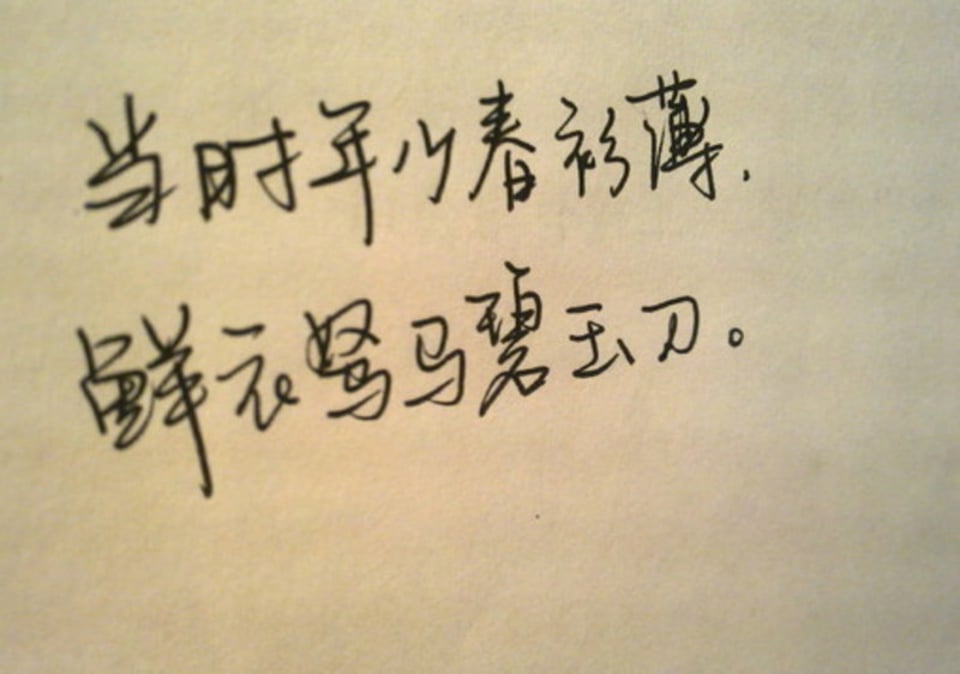 当时年少春衫薄.
鲜衣驽马碧玉刀。